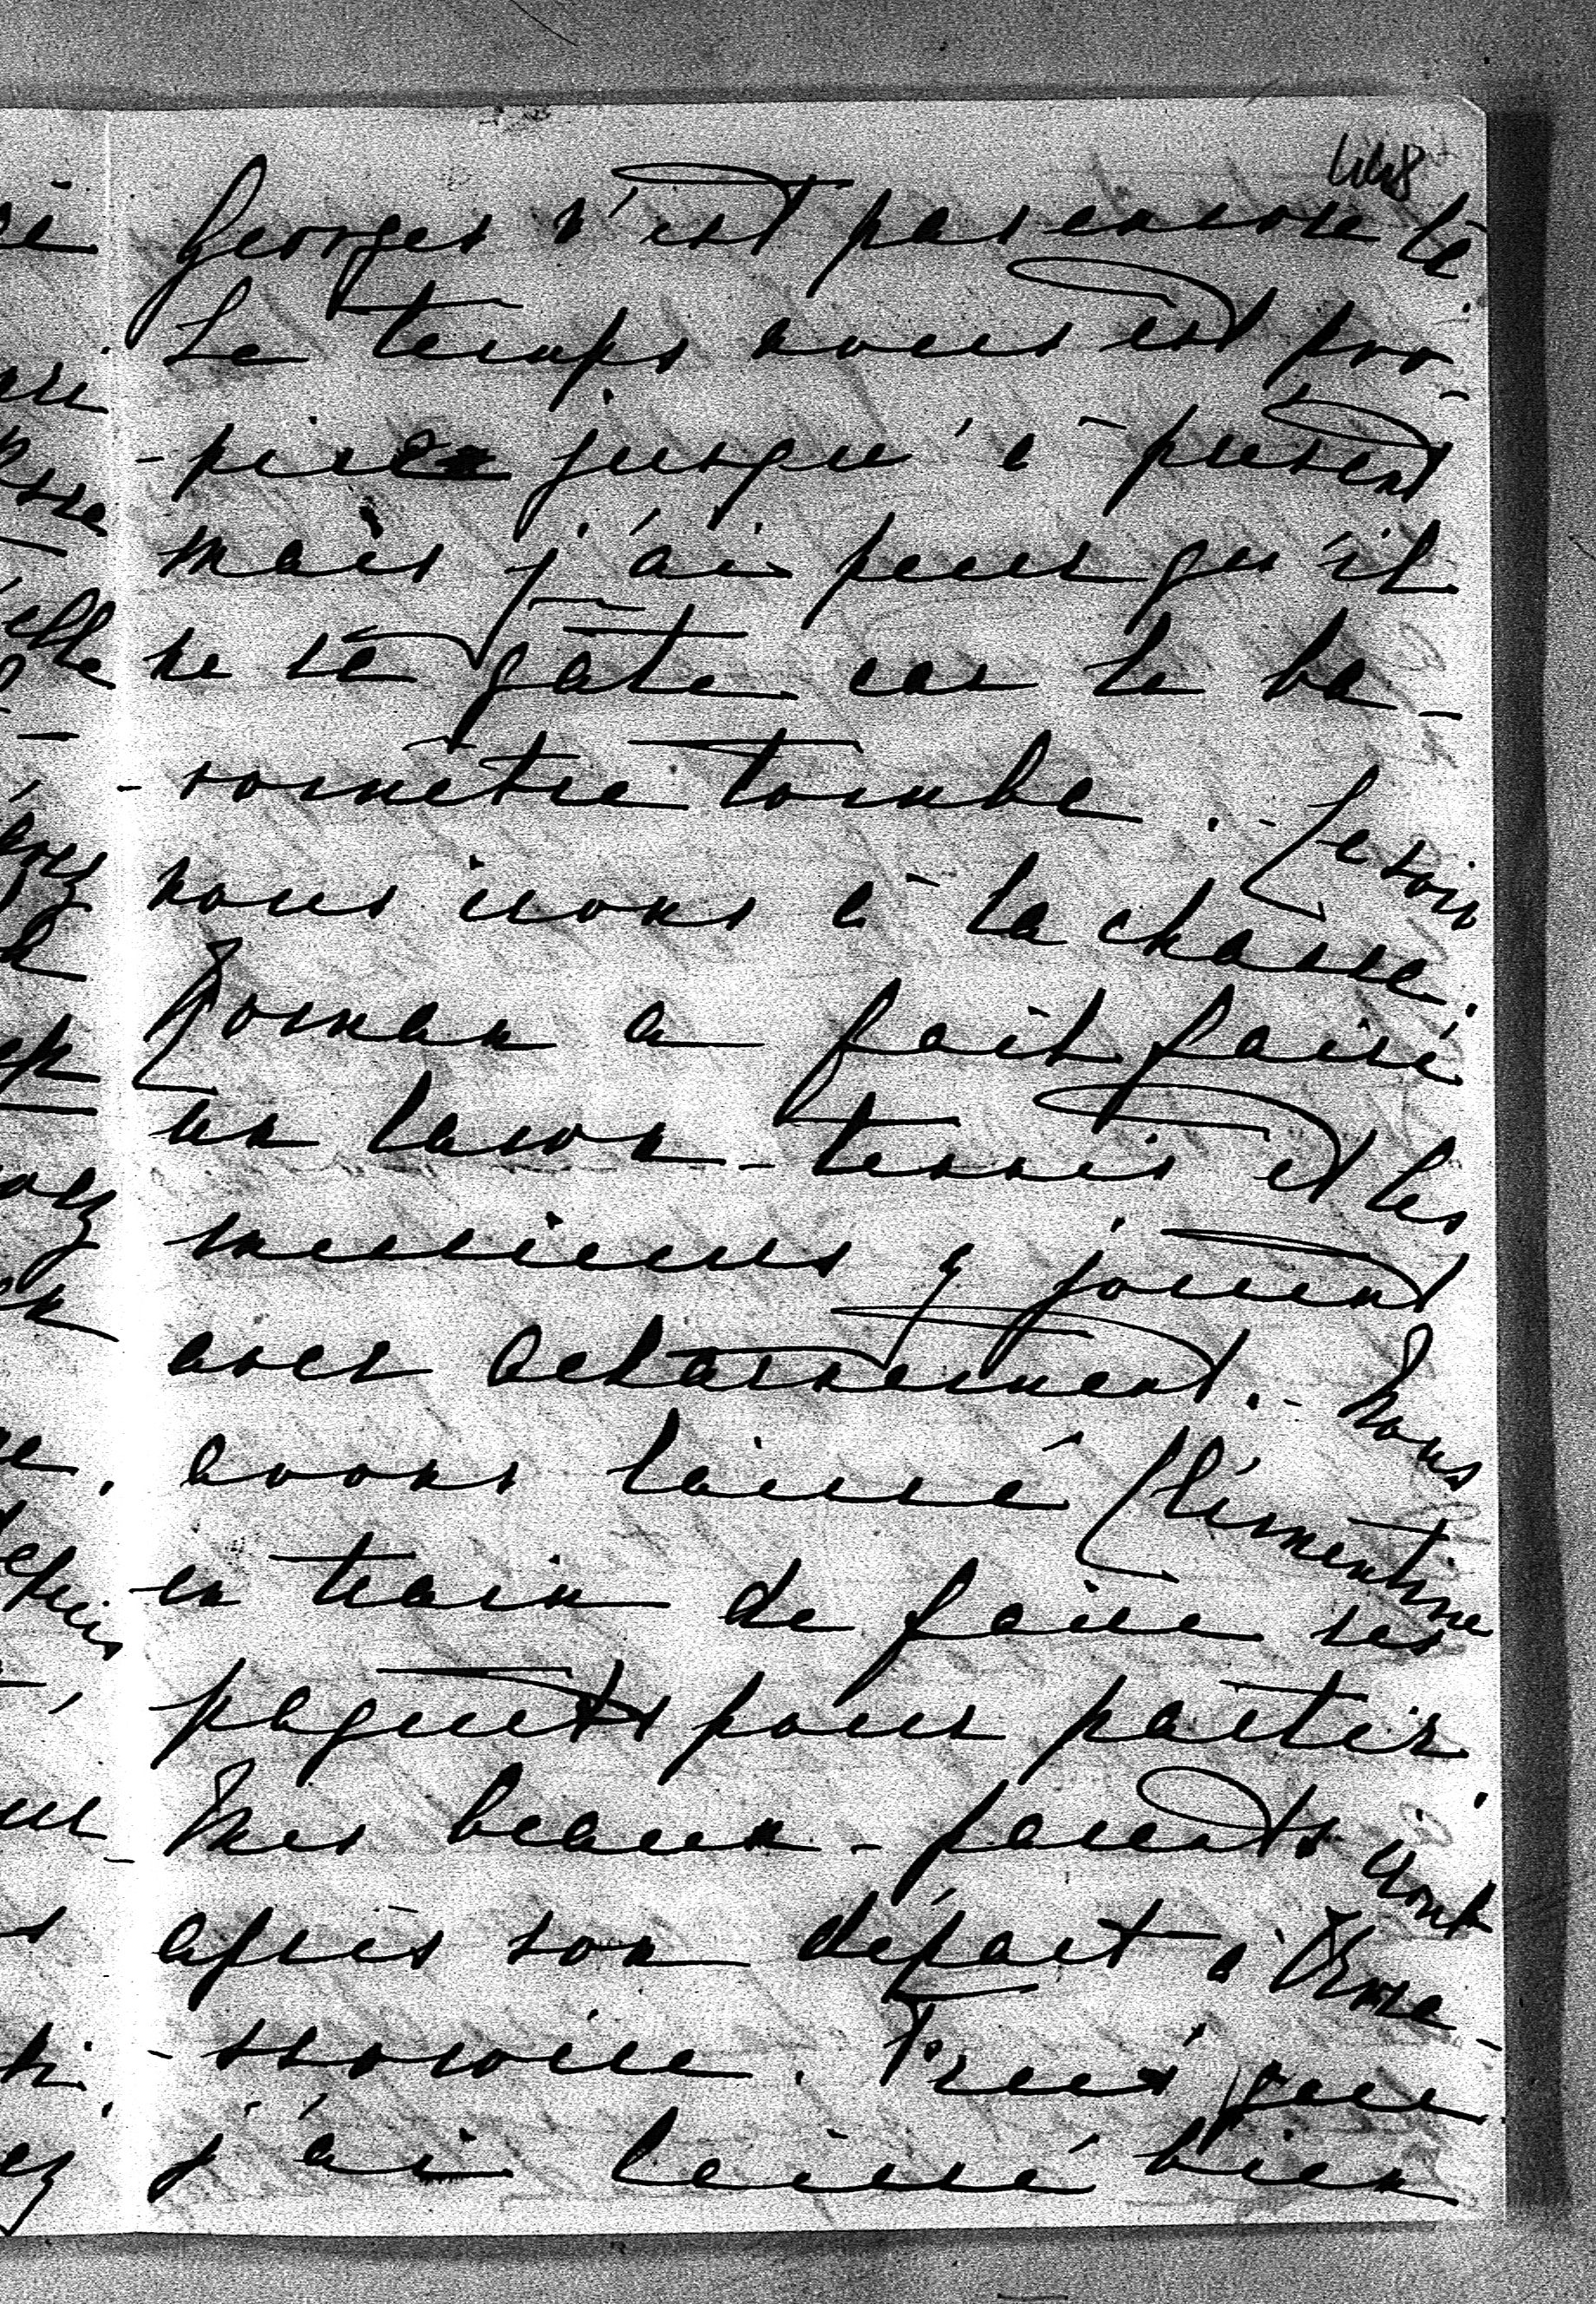 448
Georges n'est pas encore là.
Le temps nous est pro-
-pice jusqu'à présent
mais j'ai peur qu'il
ne se gâte car le ba-
-romètre tombe. - Le soir
nous irons à la chasse.
Roman a fait faire
un lawn-tennis et les
messieurs y jouent
avec acharnement. - Nous
avons laissé Clémentine
en train de faire ses
paquets pour partir.
Mes beaux-parents iront
après son départ à
j'ai laissé bien